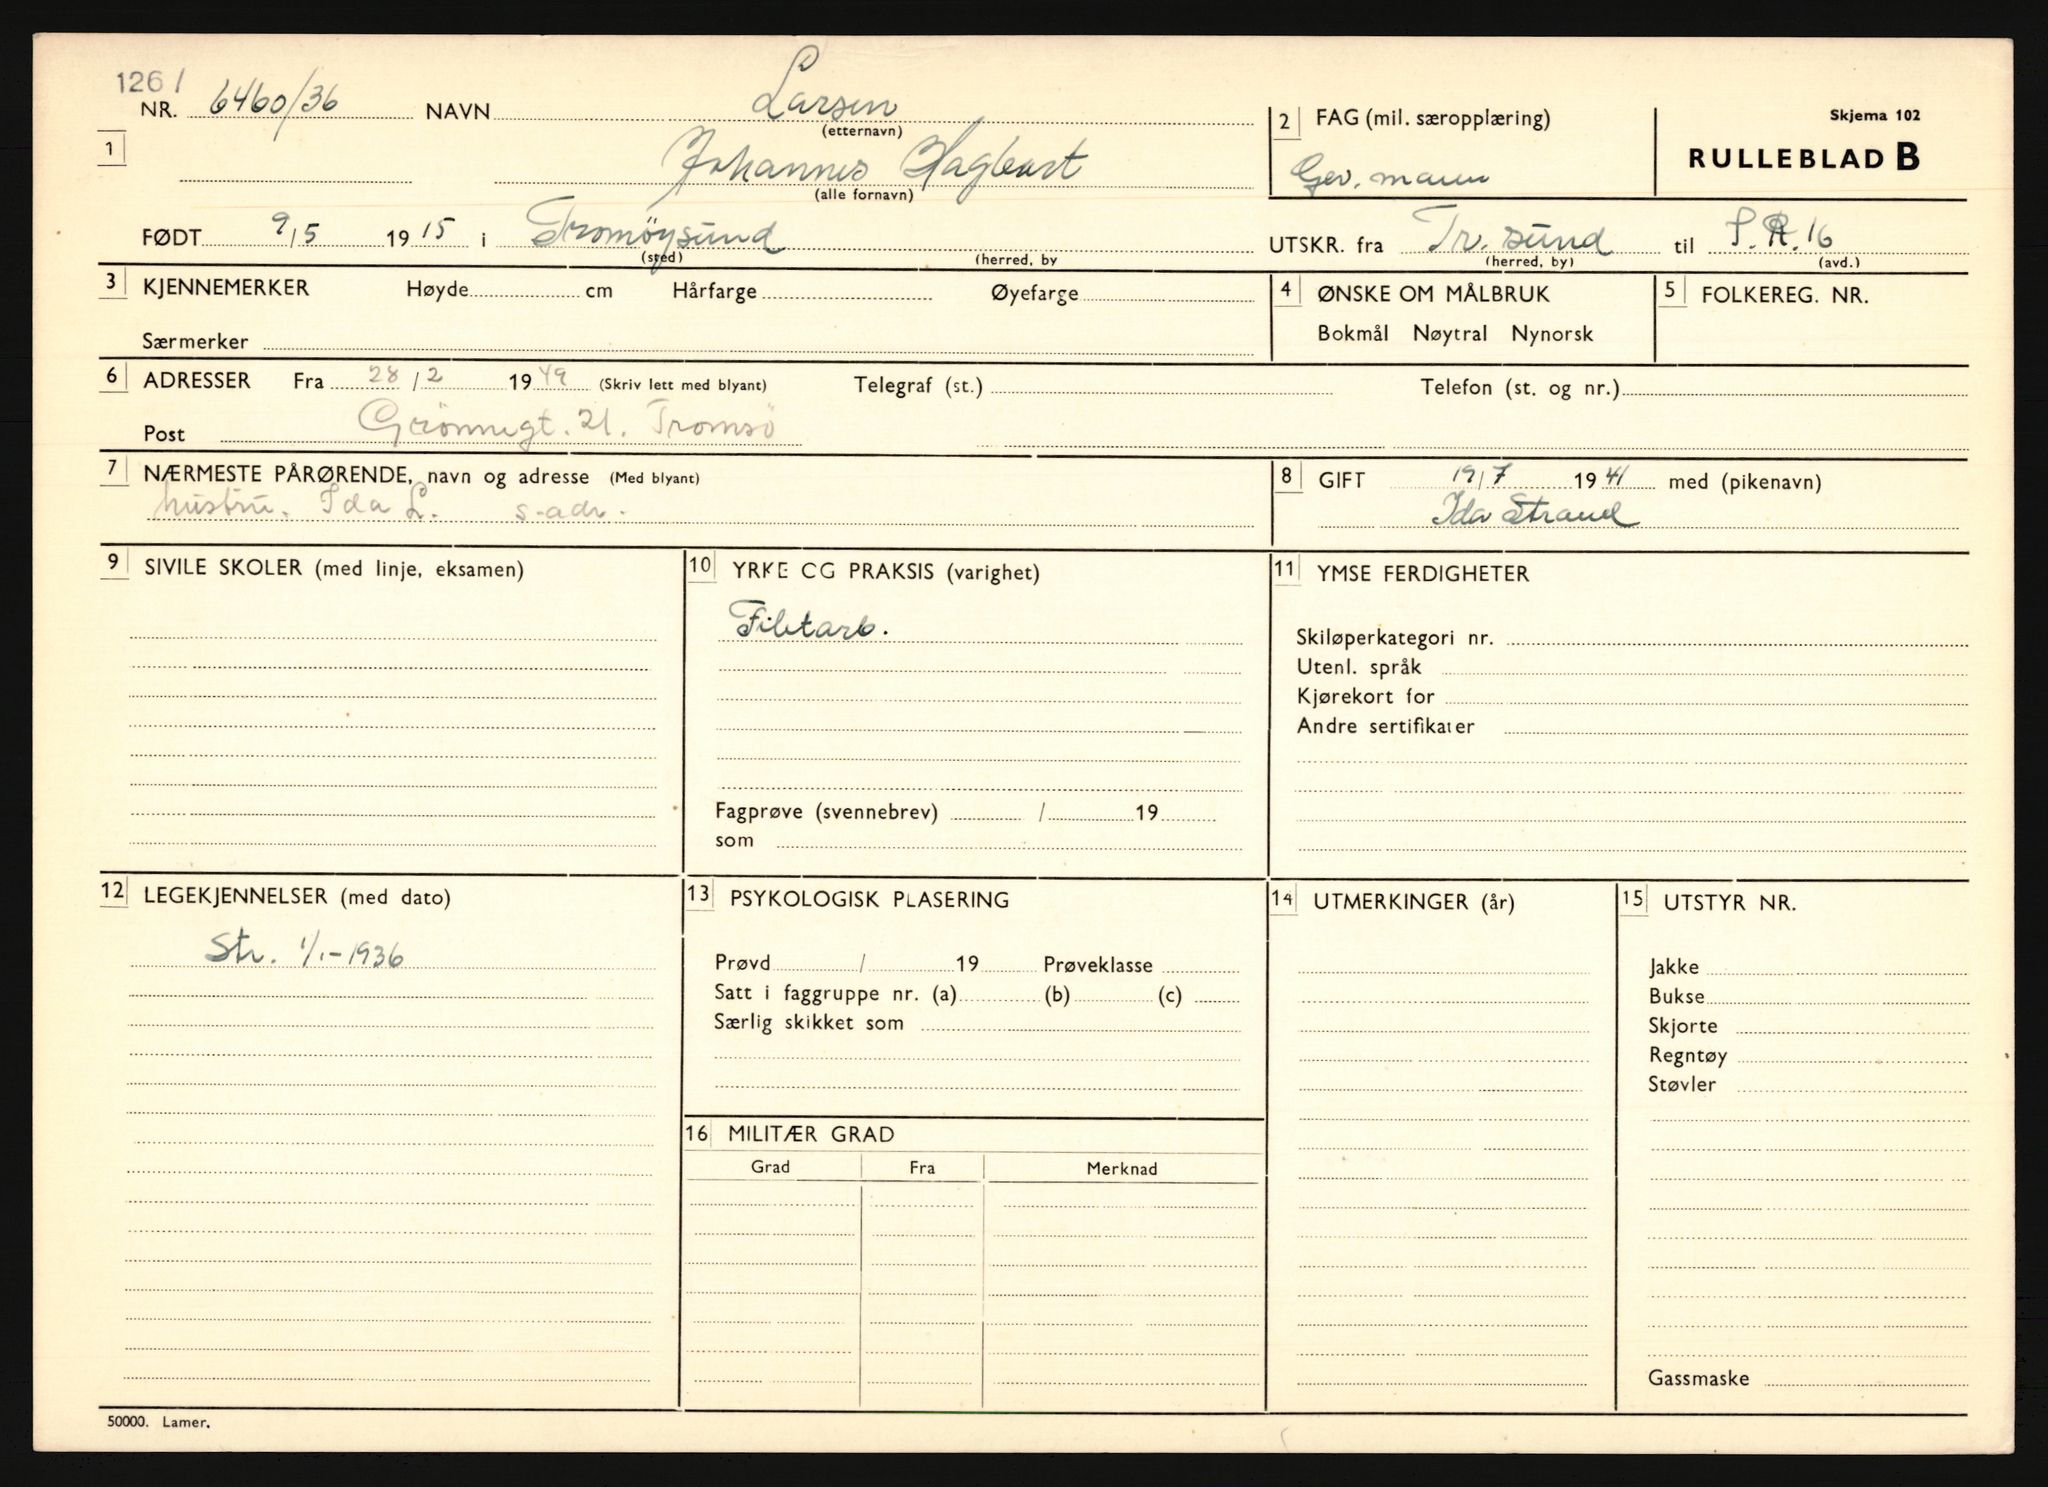 1261
NR. 6460/36 NAVN Larsen
(etternavn)
2 FAG (mil. særopplæring)
Skjema 102
RULLEBLAD B
1
Johannes Hagbart
(alle fornavn)
Gev. mann
FØDT 9/5 1915 i Tromöysund
(sted) (herred, by
UTSKR. fra Tr. sund til I.R. 16
(herred, by) (avd.)
3 KJENNEMERKER Høyde cm Hårfarge Øyefarge
Særmerker
4 ØNSKE OM MÅLBRUK
Bokmål Nøytral Nynorsk
5 FOLKEREG. NR.
6 ADRESSER Fra 28/2 1949 (Skriv lett med blyant) Telegraf (st.) Telefon (st. og nr.)
Post Grönnegt. 21. Tromsö
7 NÆRMESTE PÅRØRENDE, navn og adresse (Med blyant)
hustru. Ida L. s. adr.
8 GIFT 19/7 1941 med (pikenavn)
Ida Strand
9 SIVILE SKOLER (med linje, eksamen)
10 YRKE OG PRAKSIS (varighet)
Filetarb.
Fagprøve (svennebrev) / 19
som
11 YMSE FERDIGHETER
Skiløperkategori nr.
Utenl. språk
Kjørekort for
Andre sertifikater
12 LEGEKJENNELSER (med dato)
Str. 1/1-1936
13 PSYKOLOGISK PLASERING
Prøvd / 19 Prøveklasse
Satt i faggruppe nr. (a) (b) (c)
Særlig skikket som
14 UTMERKINGER (år)
15 UTSTYR NR.
Jakke
Bukse
Skjorte
Regntøy
Støvler
Gassmaske
16 MILITÆR GRAD
Grad Fra Merknad
50000. Lamer.